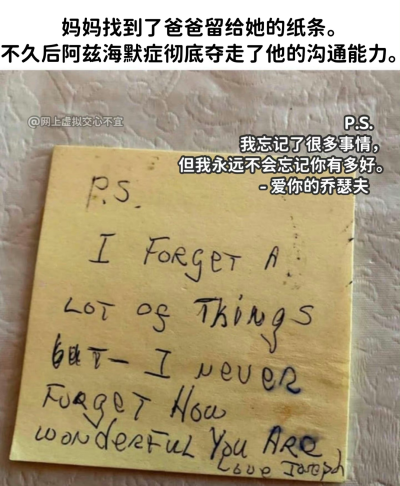 妈妈找到了爸爸留给她的纸条。
不久后阿兹海默症彻底夺走了他的沟通能力。
@网上虚拟交心不宜
P.S.
我忘记了很多事情，
但我永远不会忘记你有多好。
- 爱你的乔瑟夫
P.S.
I FORGET A
LOT OF THINGS
but - I NEVER
FORGET HOW
WONDERFUL YOU ARE
LOVE JOSEPH